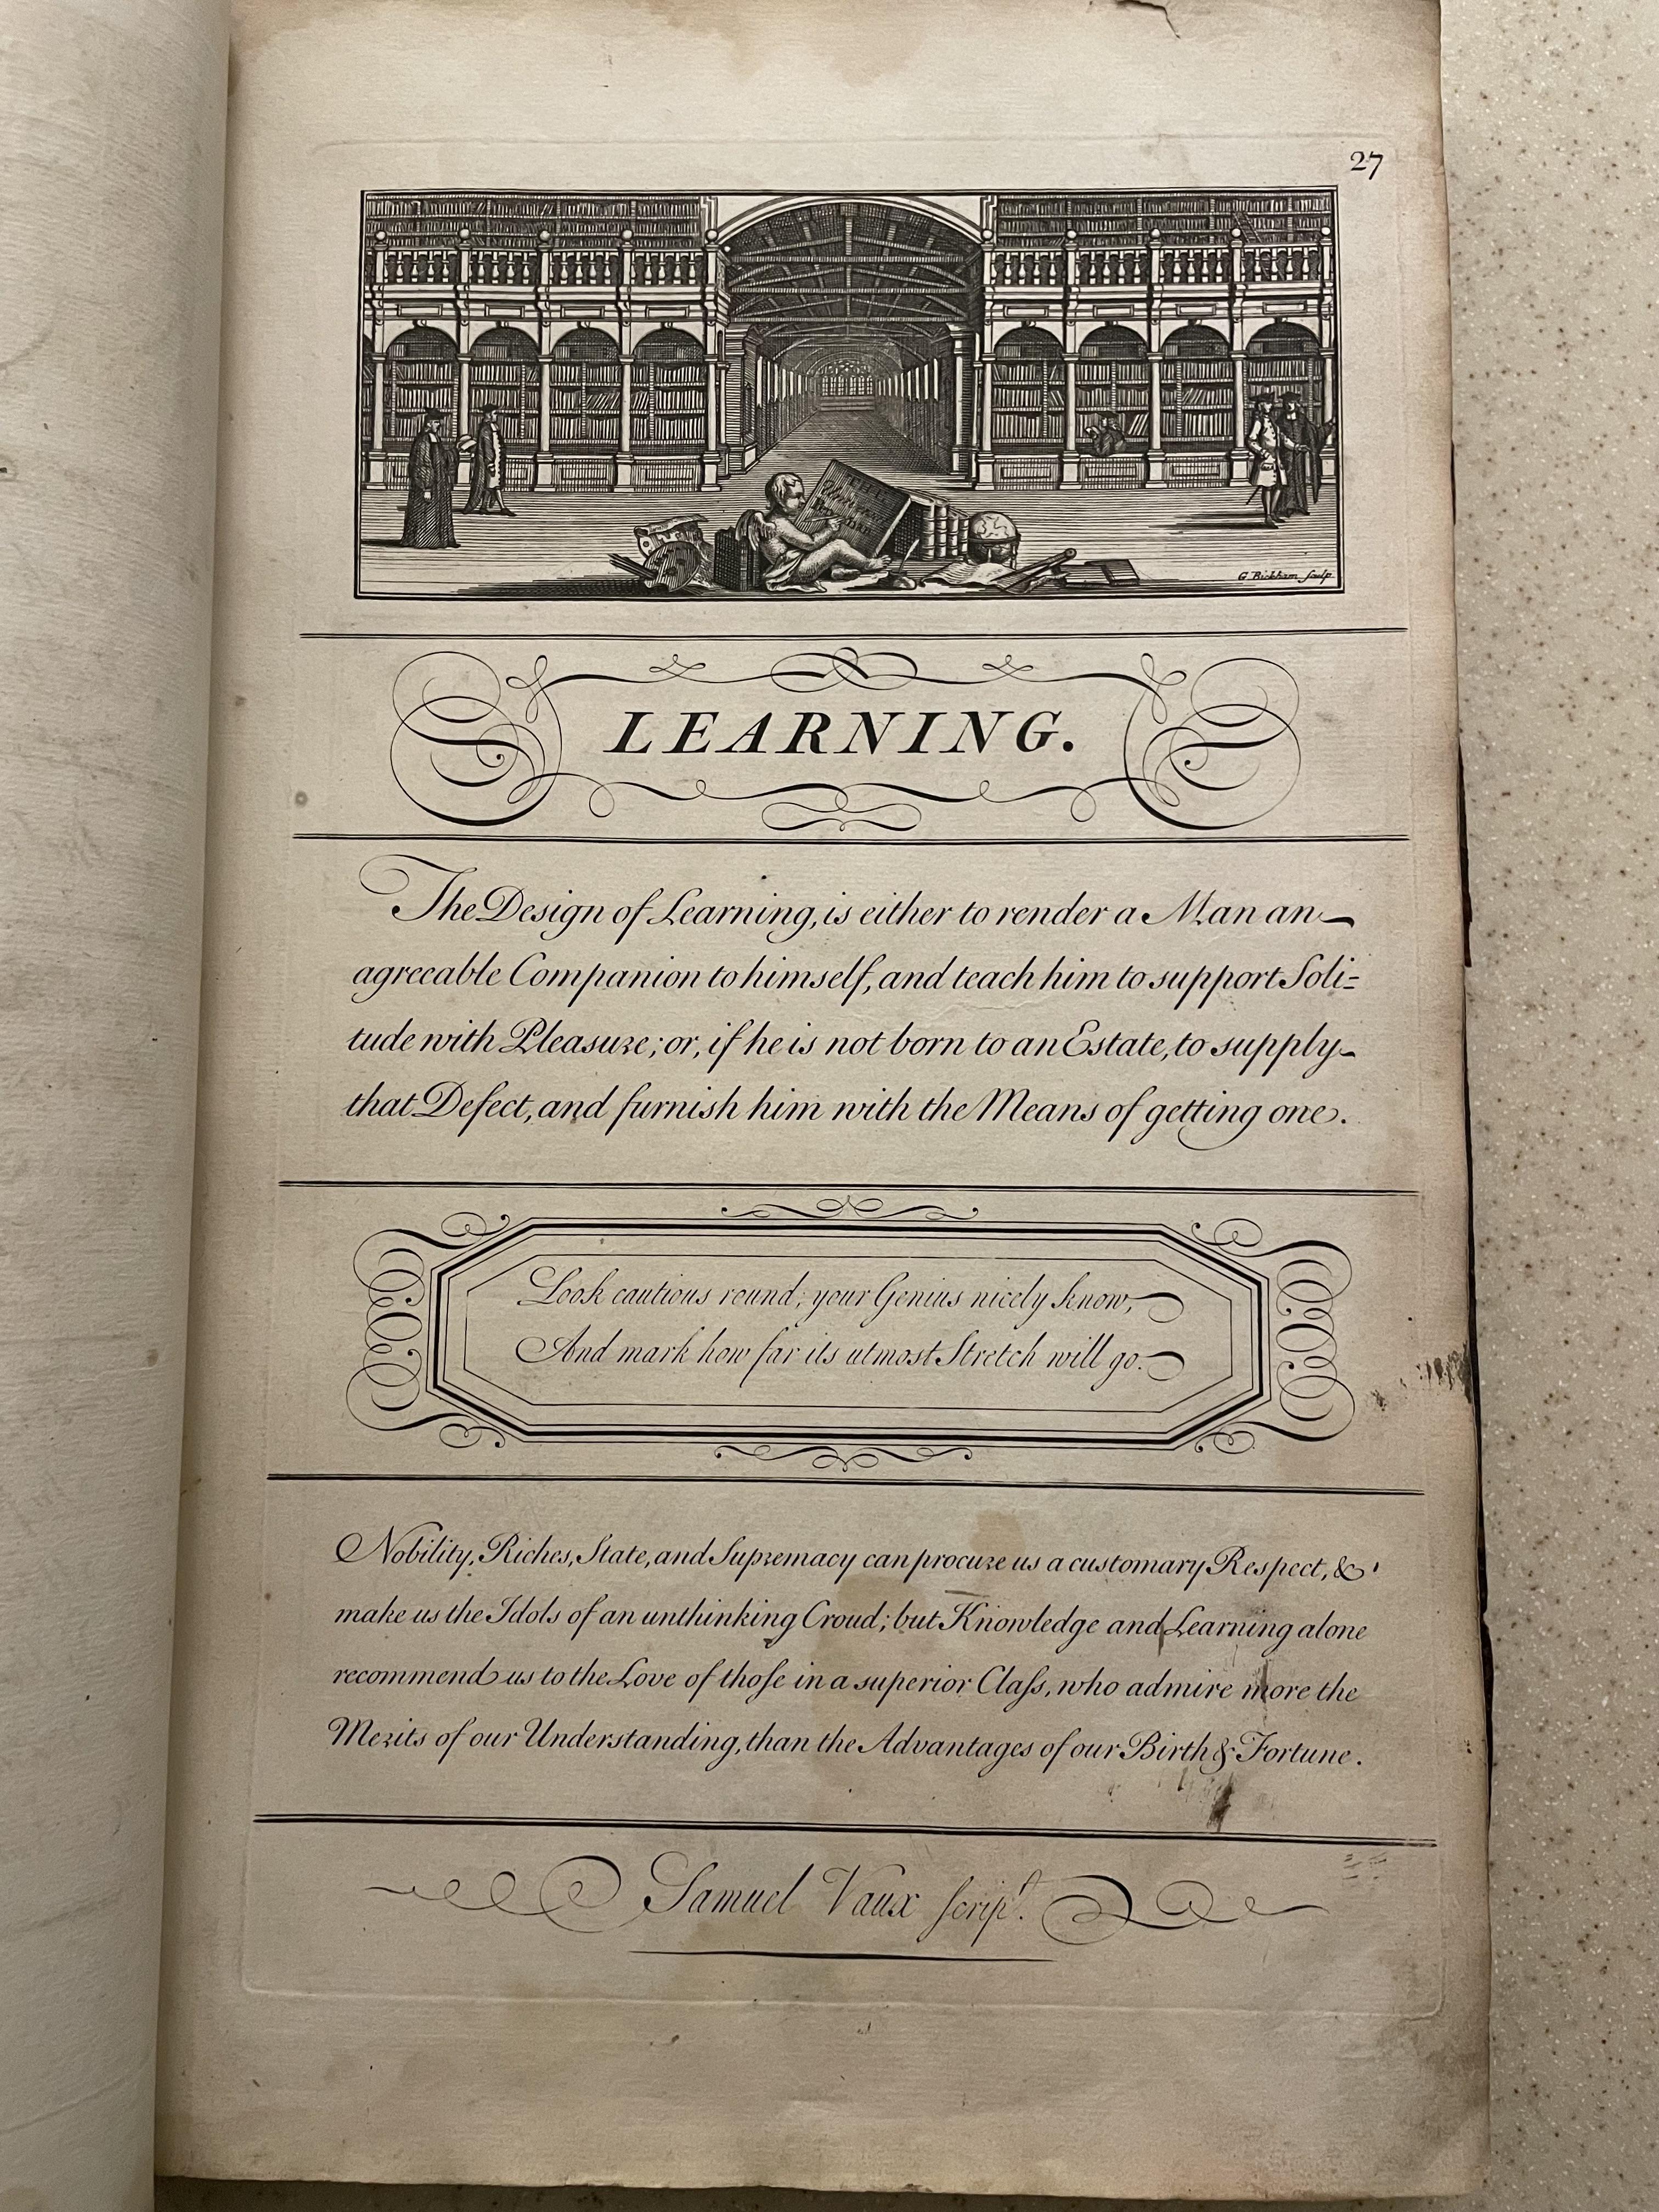 27
G Bickham sculp
LEARNING.
The Design of Learning, is either to render a Man an
agreeable Companion to himself, and teach him to support Soli=
tude with Pleasure; or, if he is not born to an Estate, to supply
that Defect, and furnish him with the Means of getting one.
Look cautious round; your Genius nicely know,
And mark how far its utmost Stretch will go.
Nobility, Riches, State, and Supremacy can procure us a customary Respect, &
make us the Idols of an unthinking Croud; but Knowledge and Learning alone
recommend us to the Love of thoſe in a superior Claſs, who admire more the
Merits of our Understanding, than the Advantages of our Birth & Fortune.
Samuel Vaux ſcripᵗ.